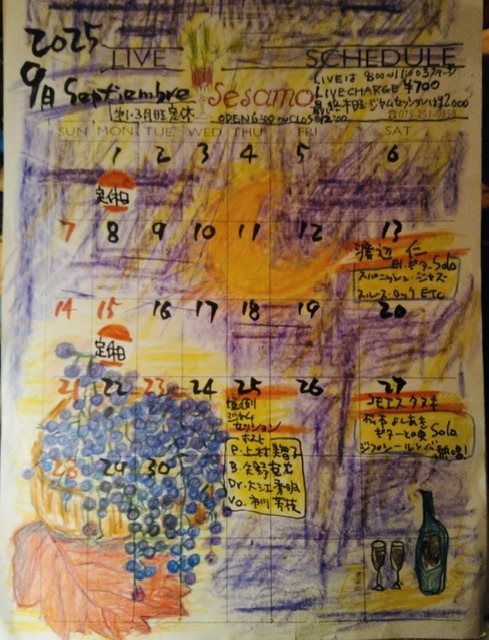 2025
LIVE SCHEDULE
9月 Septiembre
第1・3月旺定休
Sesamo
OPEN 6:00 CLOS 12:00
LIVEは 8:00 11:00 3ステージ
LIVECHARGE ¥700
最終木旺ジャムセッションは¥2000
☎075-251-0858
SUN MON TUE WED THU FRI SAT
1 2 3 4 5 6
定休日
7 8 9 10 11 12 13
渡辺 仁
El.ギターSolo
スパニッシュ・ジャズ
ブルース・ロック ETC
14 15 16 17 18 19 20
定休日
21 22 23 24 25 26 27
恒例
ジャム
セッション
ホスト
P.上村美智子
Dr.大江秀明
Vo.市川芳枝
コモエスタヌキ
松市よしあき
ギターと唄 Solo
熱唱!
28 29 30